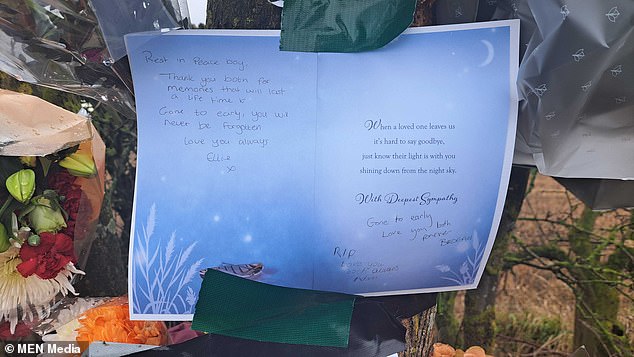 Rest in Peace boy,
Thank you both for
memories that will last
a life time
Gone to early, you will
never be forgotten
Love you always
Ellie
x
When a loved one leaves us
it's hard to say goodbye,
just know their light is with you
shining down from the night sky.
With Deepest Sympathy
Gone to early
Love you both
forever
RIP
© MEN Media